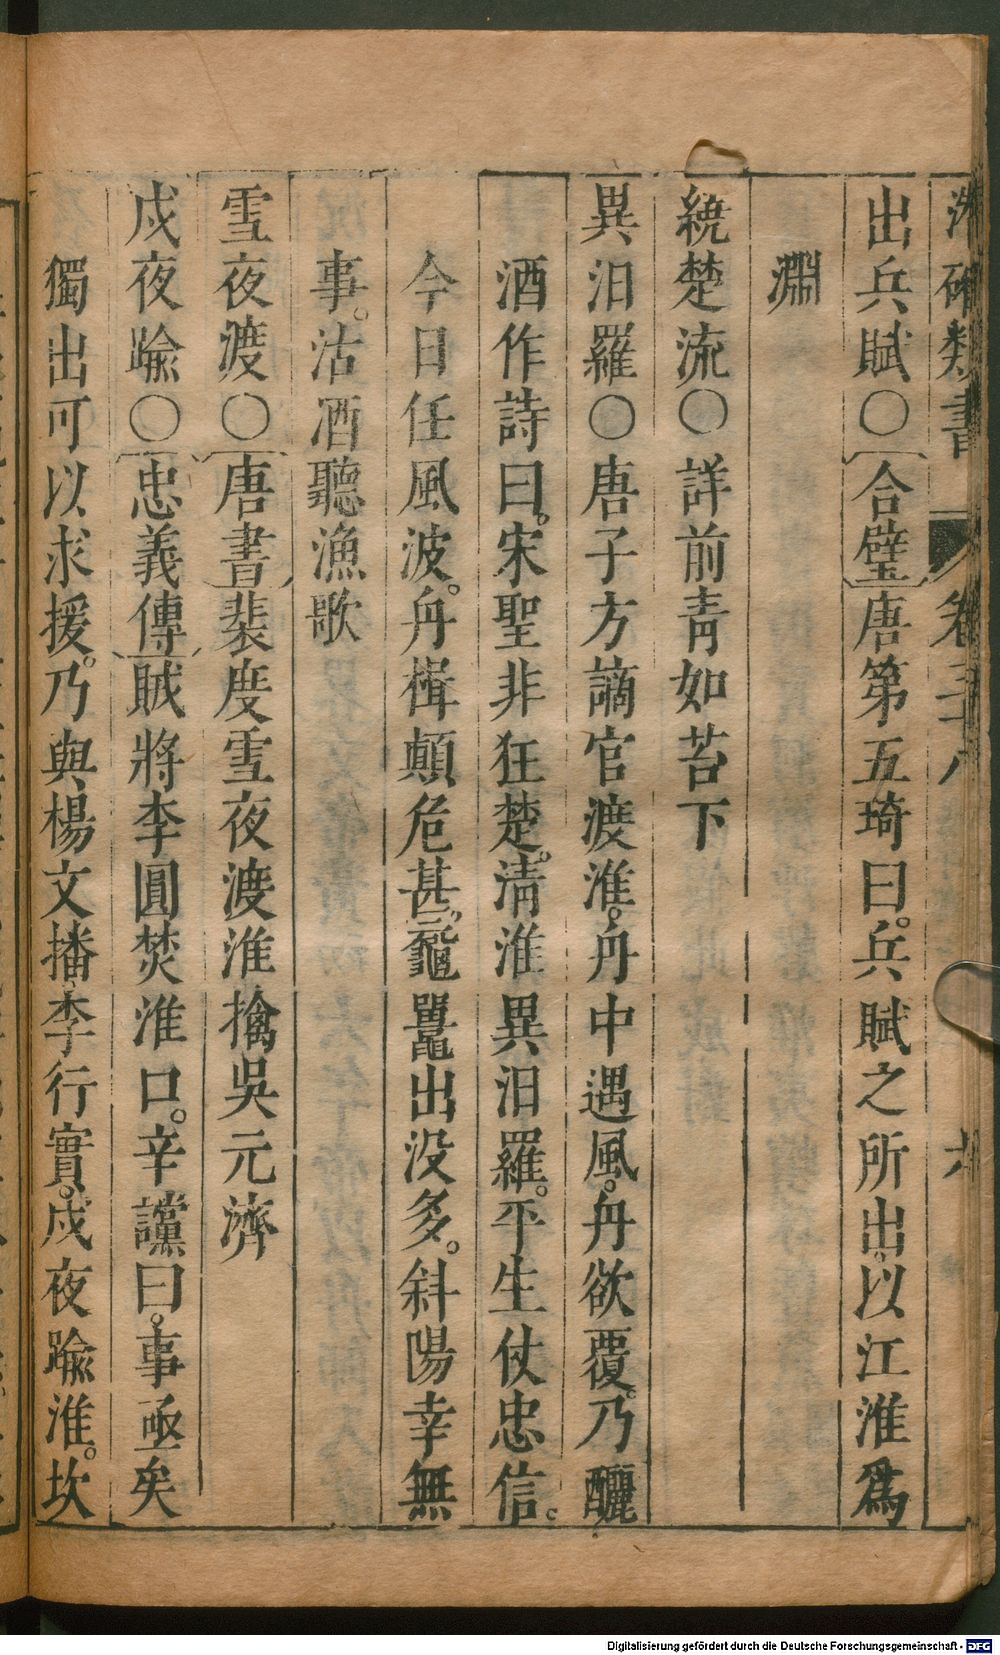 類書 卷三十八 六
出兵賦○〔合璧〕唐第五琦曰。兵賦之所出。以江淮爲
淵
統楚流○詳前靑如苔下
異汨羅○唐子方謫官渡淮。舟中遇風。舟欲覆。乃釃
酒作詩曰。宋聖非狂楚。淸淮異汨羅。平生仗忠信。
今日任風波。舟楫顛危甚。黿鼉出没多。斜陽幸無
事。沽酒聽漁歌
雪夜渡○〔唐書〕裴度雪夜渡淮擒吳元濟
戍夜踰○〔忠義傳〕賊將李圓焚淮口。辛讜曰。事亟矣
獨出可以求援。乃與楊文播李行實。戍夜踰淮。坎
Digitalisierung gefördert durch die Deutsche Forschungsgemeinschaft - DFG